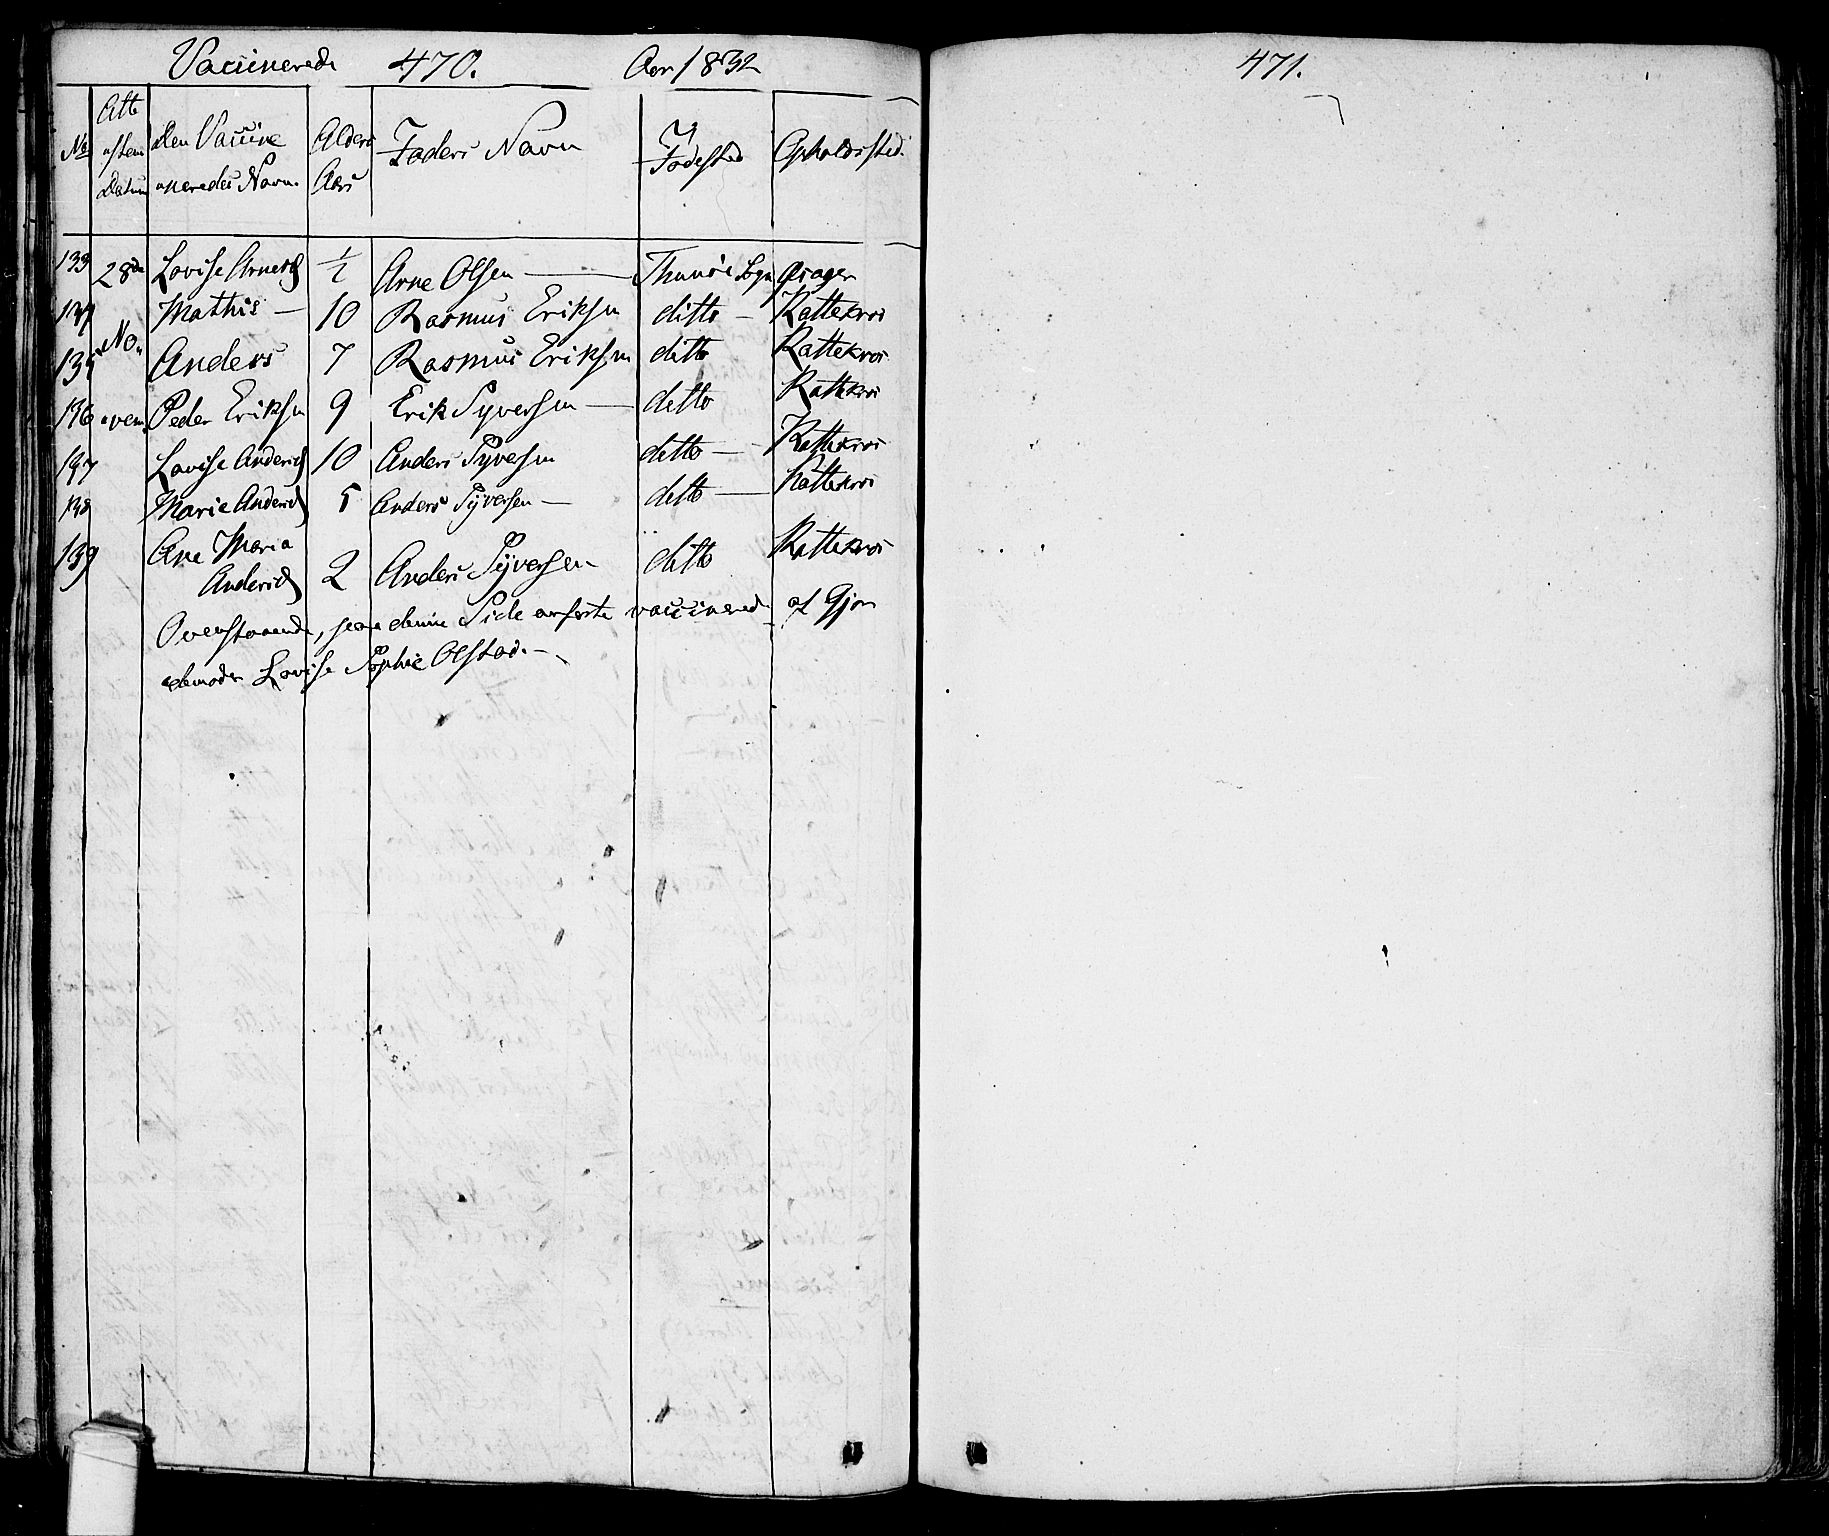 Vaccinerede 470. Aar 1832
No Atte
stens
Datum den Vaccine
neredes Navn. Alders
Aar Faders Navn Fødested Opholdssted.
133 28de Lovise Arnesd ½ Arne Olsen — Thunøe Sogn
134 Mathis — 10 Rasmus Eriksen ditto — Rattekros
135 No- Anders 7 Rasmus Eriksen ditto Rattekros
136 vem. Peder Eriksen 9 Erik Syversen — ditto Rattekros
137 Lovise Andersd 10 Anders Syversen ditto — Rattekros
138 Marie Andersd 5 Anders Syversen — ditto — Rattekros
139 Ane Maria
Andersd 2 Anders Syversen ditto Rattekros
Ovenstaaende, paa denne Side anførte vaccinered af Gjor
demoder Lovise Sophie Olstad. —
471.